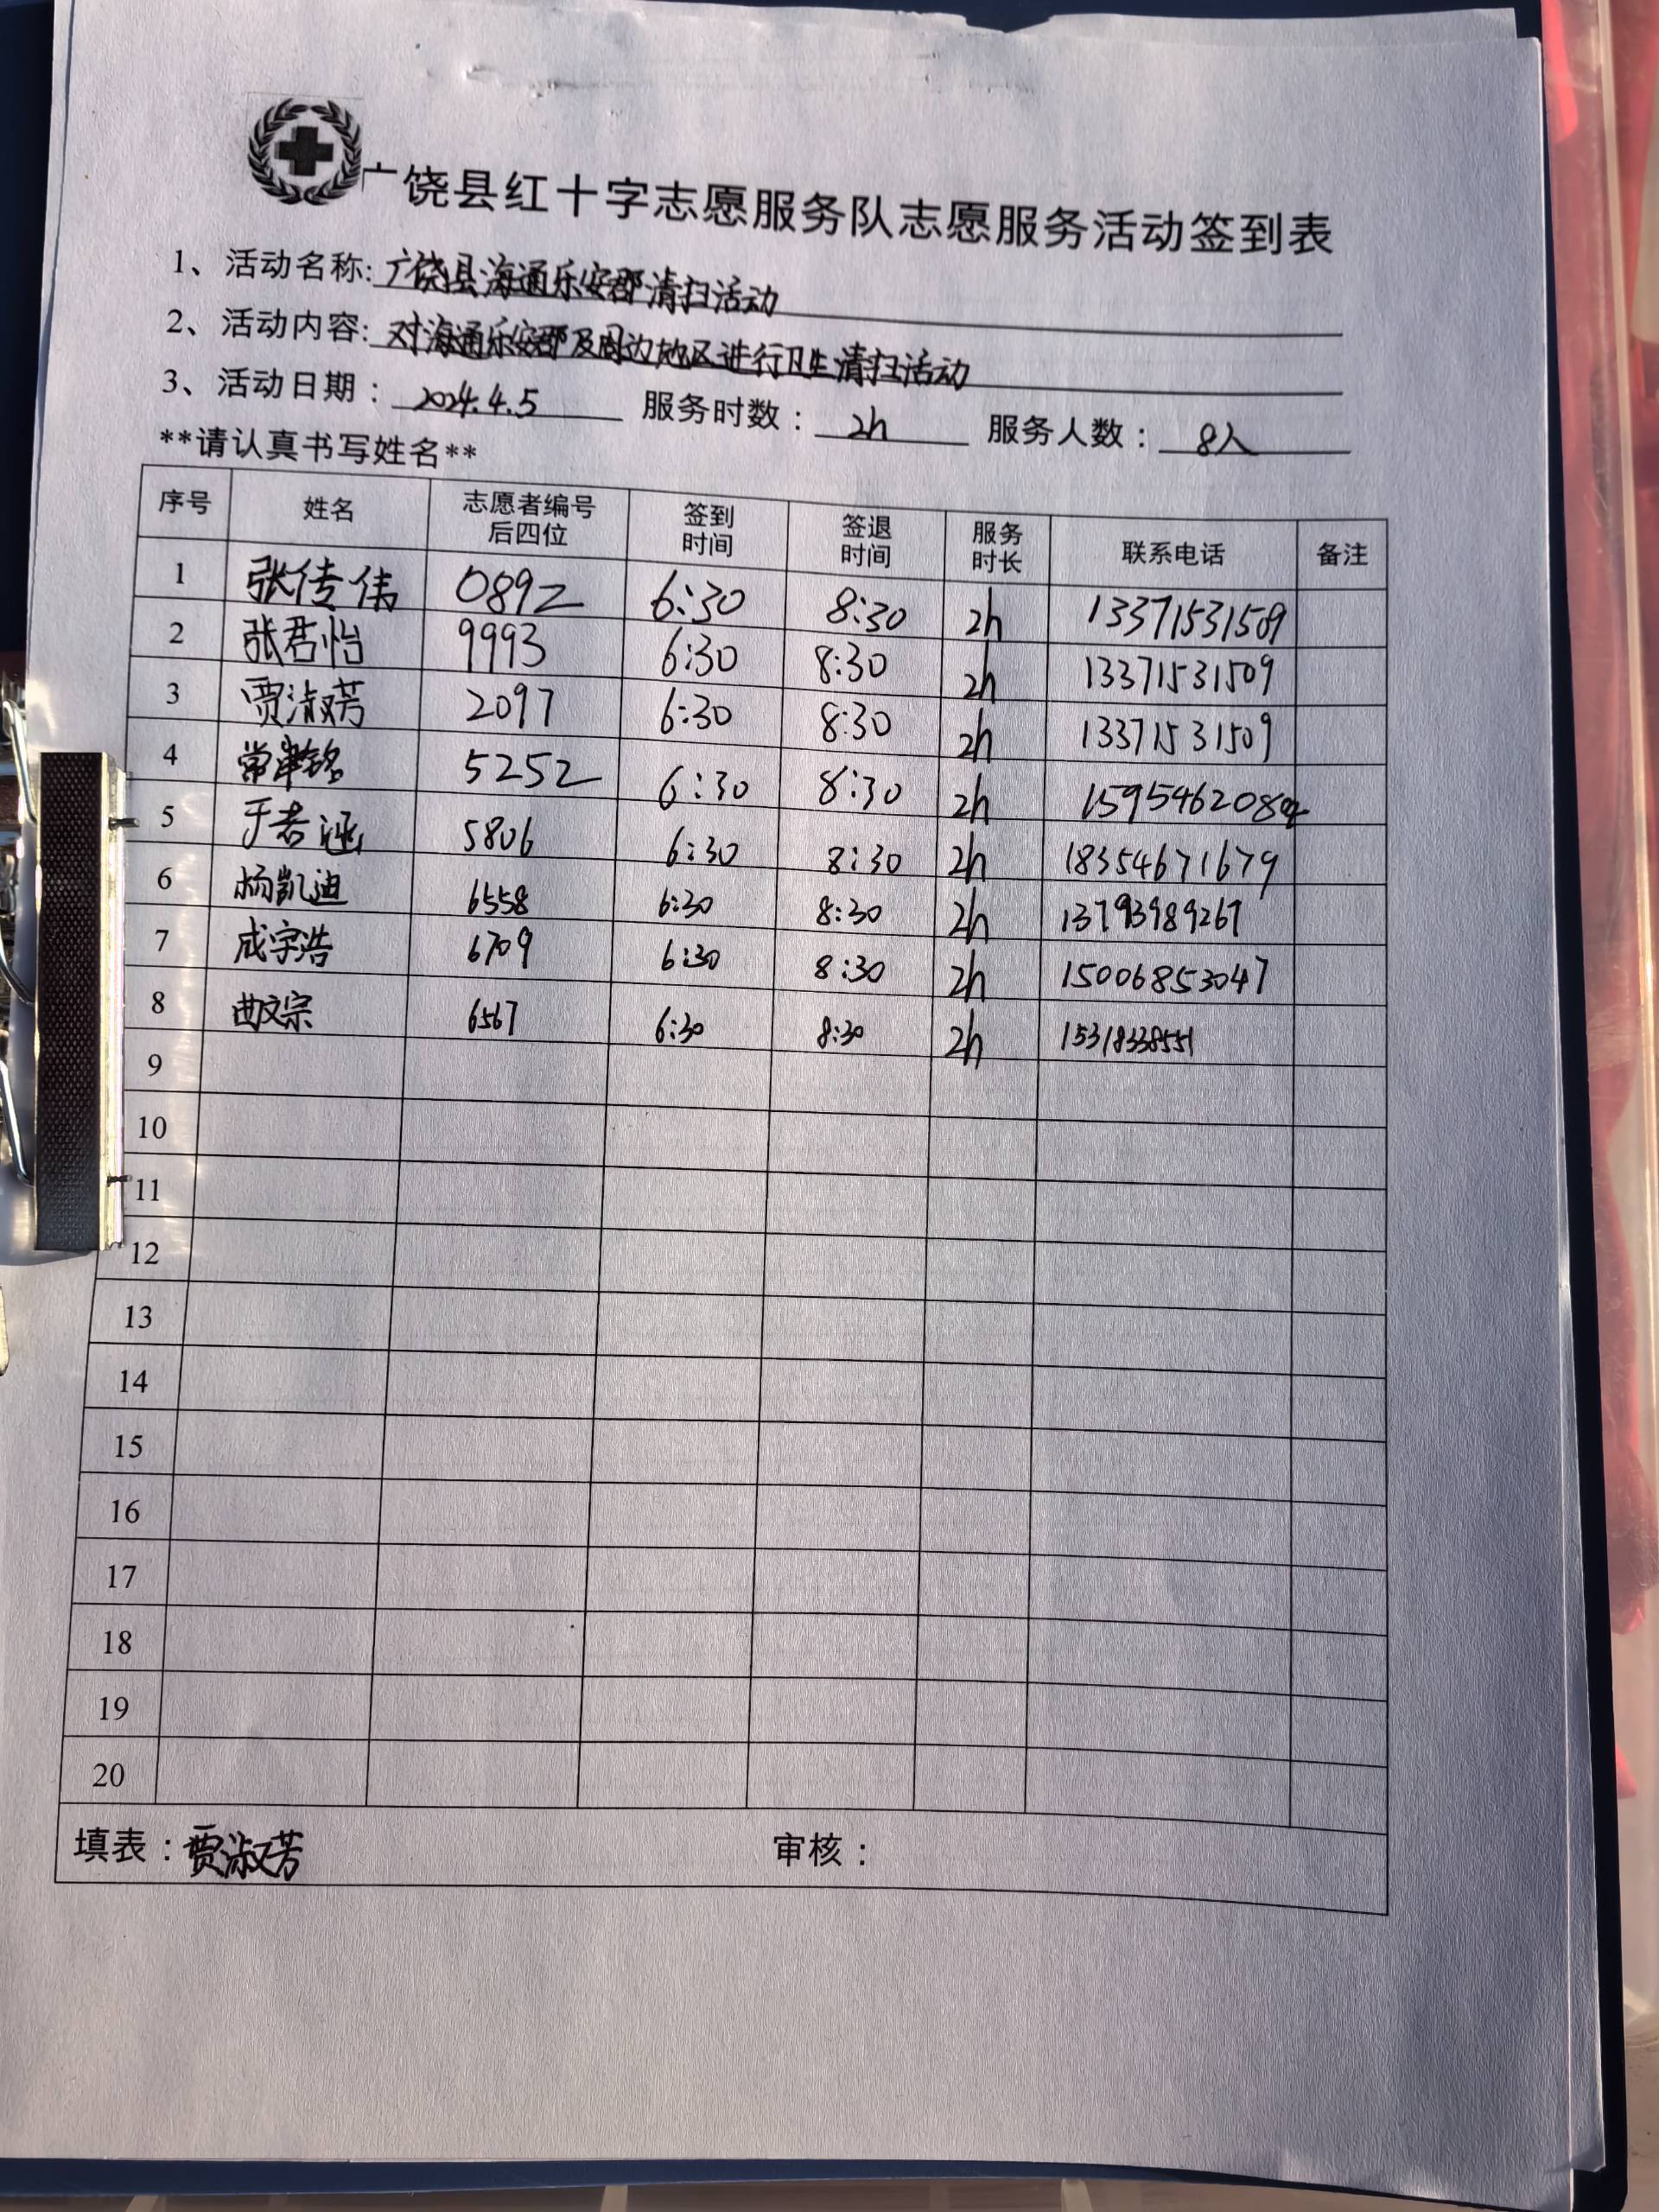 广饶县红十字志愿服务队志愿服务活动签到表
1、活动名称:广饶县海通乐安郡清扫活动
2、活动内容:对海通乐安郡及周边地区进行卫生清扫活动
3、活动日期：2024.4.5 服务时数：2h 服务人数：8人
**请认真书写姓名**
序号 姓名 志愿者编号后四位 签到时间 签退时间 服务时长 联系电话 备注
1 张传伟 0892 6:30 8:30 2h 13371531509
2 张君怡 9993 6:30 8:30 2h 13371531509
3 贾淑芳 2097 6:30 8:30 2h 13371531509
4 5252 6:30 8:30 2h
5 于君涵 5806 6:30 8:30 2h 18354671679
6 杨凯迪 6558 6:30 8:30 2h 13793989267
7 成宇浩 6709 6:30 8:30 2h 15006853047
8 曲文宗 6567 6:30 8:30 2h 15318338551
9
10
11
12
13
14
15
16
17
18
19
20
填表：贾淑芳 审核：